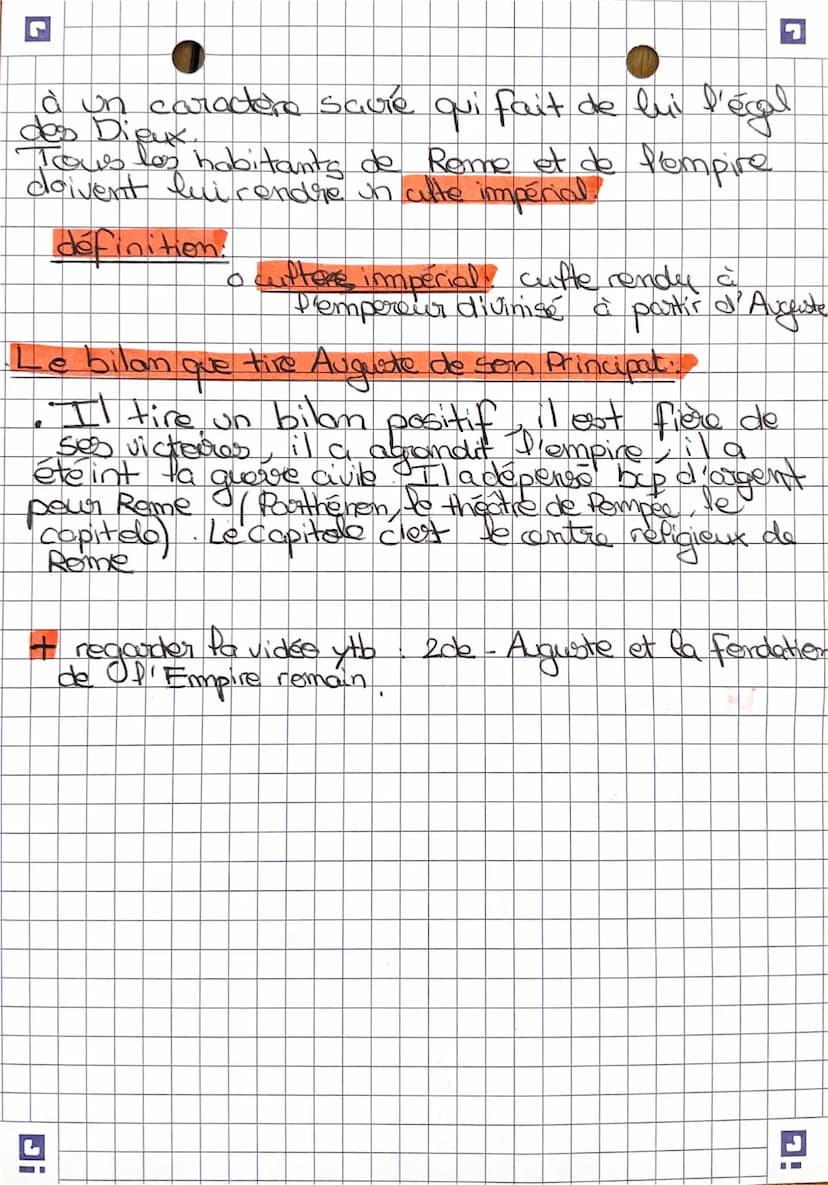 à un caractère sacré qui fait de lui l'égal
des Dieux.
Tous les habitants de Rome et de l'empire
doivent lui rendre un culte impérial.
définition:
o culte impérial: culte rendu à
l'empereur divinisé à partir d'Auguste
Le bilan que tire Auguste de son Principat:
. Il tire un bilan positif, il est fière de
ses victoires, il a agrandit l'empire, il a
éteint la guerre civile. Il a dépensé bcp d'argent
pour Rome (Panthénon, le théâtre de Pompée, le
capitole). Le Capitole c'est le centre religieux de
Rome
+ regarder la vidéo ytb : 2de - Auguste et la fondation
de l'Empire romain.